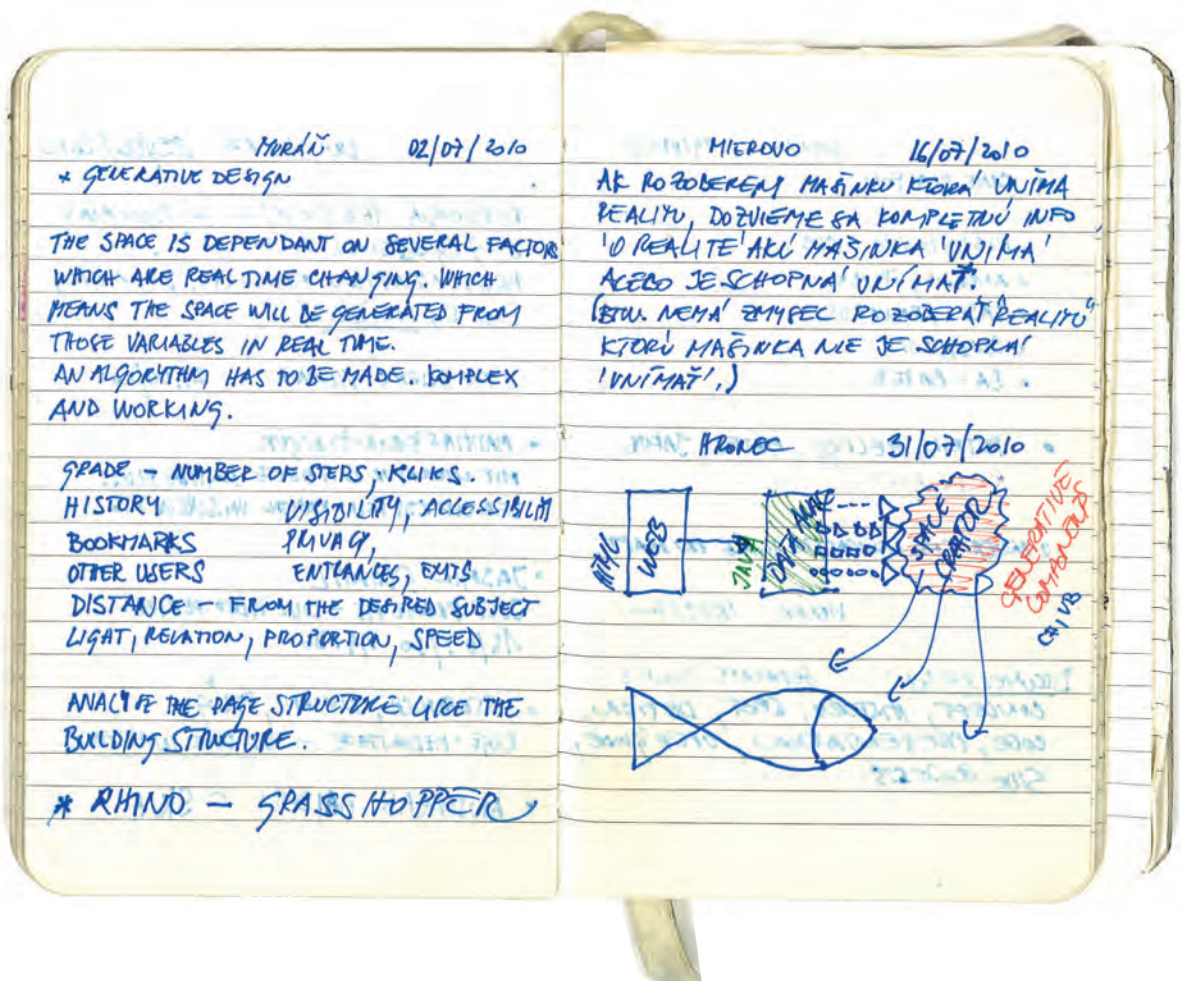 MURÁŇ 02/07/2010
* GENERATIVE DESIGN
THE SPACE IS DEPENDANT ON SEVERAL FACTORS
WHICH ARE REAL TIME CHANGING. WHICH
MEANS THE SPACE WILL BE GENERATED FROM
THOSE VARIABLES IN REAL TIME.
AN ALGORYTHM HAS TO BE MADE. KOMPLEX
AND WORKING.
GRADE – NUMBER OF STEPS, KLIKS.
HISTORY VISIBILITY, ACCESSIBILITY
BOOKMARKS PRIVACY,
OTHER USERS ENTRANCES, EXITS
DISTANCE – FROM THE DESIRED SUBJECT
LIGHT, RELATION, PROPORTION, SPEED
ANALYSE THE PAGE STRUCTURE LIKE THE
BUILDING STRUCTURE.
* RHINO – GRASSHOPPER
MIEROVO 16/07/2010
AK ROZOBEREM MAŠINKU KTORÁ VNÍMA
REALITU, DOZVIEME SA KOMPLETNÚ INFO
'O REALITE' AKÚ MAŠINKA 'VNÍMA'
ALEBO JE SCHOPNÁ VNÍMAŤ.
(BTW. NEMÁ ZMYSEL ROZOBERAŤ "REALITU"
KTORÚ MAŠINKA NIE JE SCHOPNÁ
'VNÍMAŤ'.)
HRONEC 31/07/2010
HTML
WEB
JAVA
DATA
SPACE
CRAFTOR
GENERATIVE
COMPONENTS
C#, VB